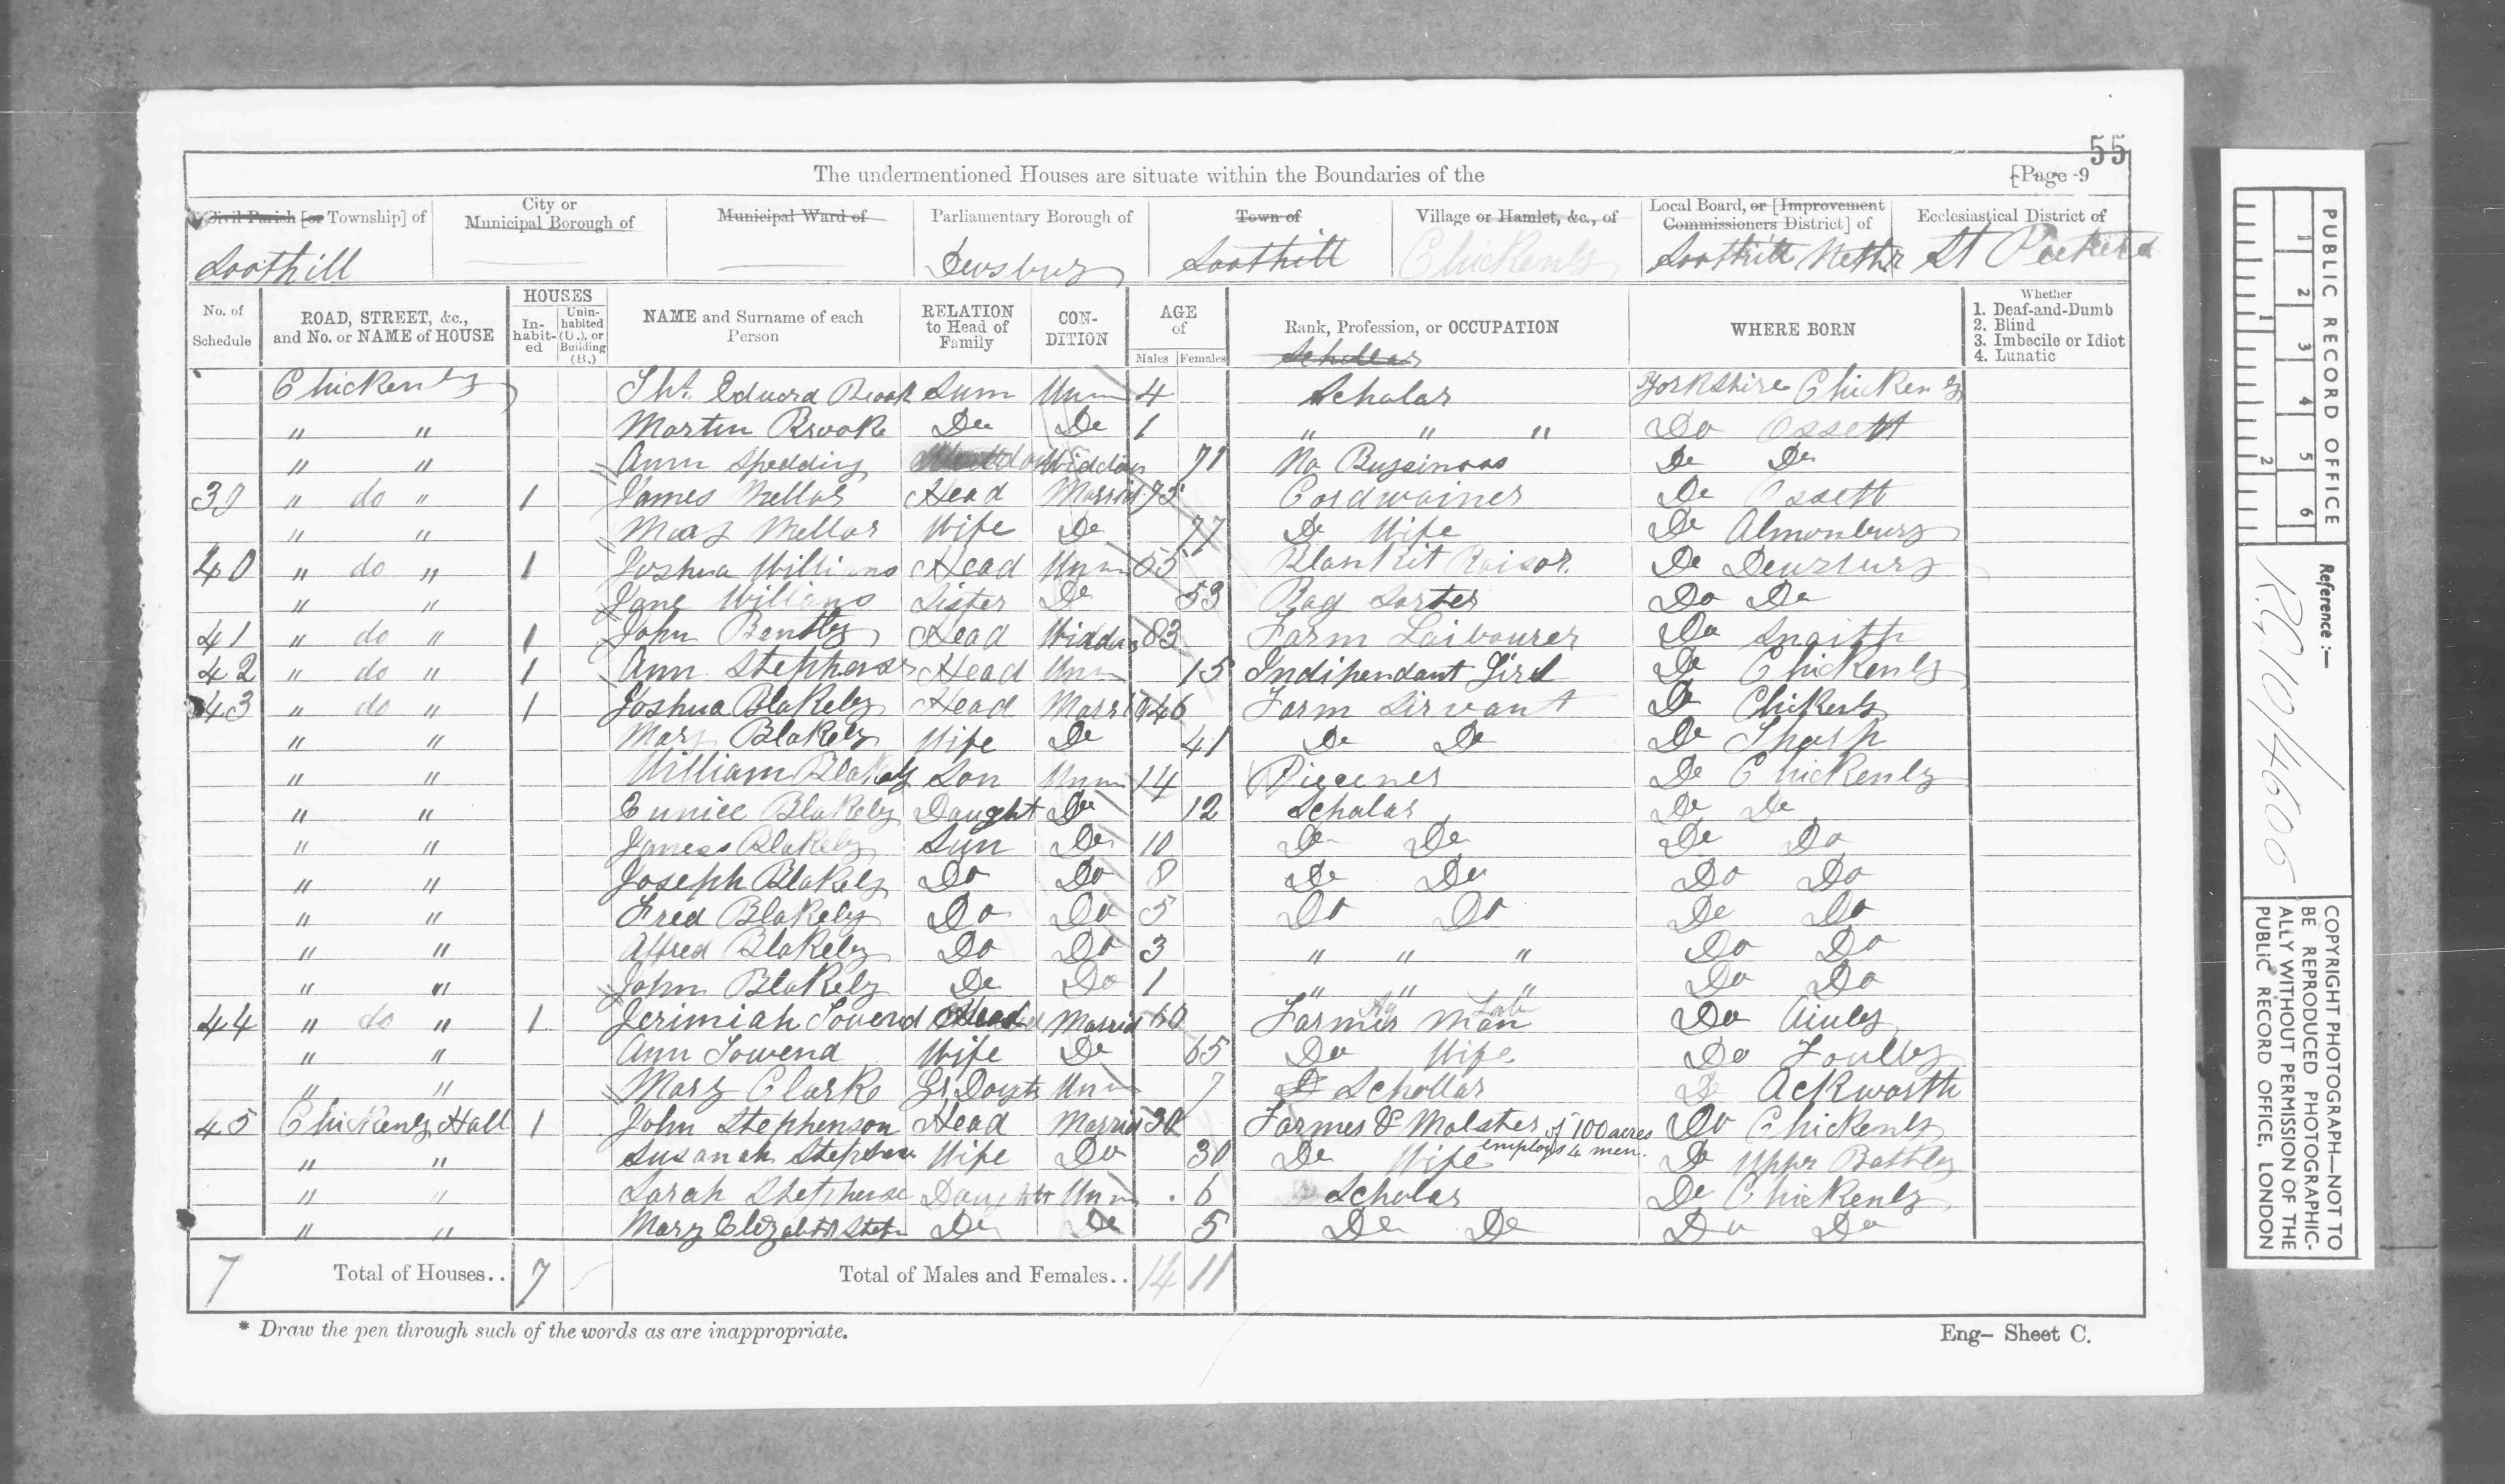 55
The undermentioned Houses are situate within the Boundaries of the
[Page 9
Civil Parish [or Township] of
City or Municipal Borough of
Municipal Ward of
Parliamentary Borough of
Town of
Village or Hamlet, &c., of
Local Board, or [Improvement Commissioners District] of
Ecclesiastical District of
Soothill Dewsbury Soothill Chickenly Soothill Nether St
No. of Schedule
ROAD, STREET, &c., and No. or NAME of HOUSE
HOUSES
In-habit-ed
Unin-habited (U.), or Building (B.)
NAME and Surname of each Person
RELATION to Head of Family
CON-DITION
AGE of
Males Females
Rank, Profession, or OCCUPATION
Schollar
WHERE BORN
Whether
1. Deaf-and-Dumb
2. Blind
3. Imbecile or Idiot
4. Lunatic
Chickenly Edward Brook Sun Unm 4 Scholar Yorkshire Chickenly
" " Martin Brooke Do Do 1 " " " Do Ossett
" " Ann Spedding 71 No Do Do
" do " 1 James Mellor Head 75 Cordwainer Do Ossett
" " Mary Mellor Wife Do 77 Do Wife Do Almonbury
40 " do " 1 Joshua Willians Head Unm 55 Blankit Raisor Do
" " Jane Willians Sister Do 53 Rag Sorter Do Do
41 " do " 1 John Bently Head 83 Farm Laibourer Do Snaith
42 " do " 1 Ann Head Unm 15 Indipendant Girl Do Chickenly
43 " do " 1 Joshua Blakeley Head 46 Farm Sirvant Do Chickenly
" " Mary Blakeley Wife Do 41 Do Do Do
" " William Blakely Son Unm 14 Piecener Do Chickenly
" " Eunice Blakeley Daught Do 12 Scholar Do Do
" " Blakeley Sun Do 10 Do Do Do Do
" " Joseph Blakeley Do Do 8 Do Do Do Do
" " Fred Blakeley Do Do 5 Do Do Do Do
" " Alfred Blakeley Do Do 3 " " " Do Do
" " John Blakeley Do Do 1 " " " Do Do
44 " do " 1 Jerimiah Towend Head 60 Farmer Man Ag Lab Do
" " Ann Towend Wife Do 65 Do Wife Do
" " Mary Clarke Unm 7 Schollar Ackworth
45 Chickenly Hall 1 John Stephenson Head 30 Farmer & Malster of 100 acres Do Chickenly
" " Susanah Wife Do 30 Do Wife employs 4 men. Do Upper Battley
" " Sarah Unm 6 Scholar Do Chickenly
" " Mary Do Do 5 Do Do Do Do
7 Total of Houses.. 7 Total of Males and Females.. 14 11
* Draw the pen through such of the words as are inappropriate.
Eng- Sheet C.
PUBLIC RECORD OFFICE
1 2 3 4 5 6
1 2
Reference :-
RG 10/4606
COPYRIGHT PHOTOGRAPH—NOT TO
BE REPRODUCED PHOTOGRAPHIC-
ALLY WITHOUT PERMISSION OF THE
PUBLIC RECORD OFFICE, LONDON